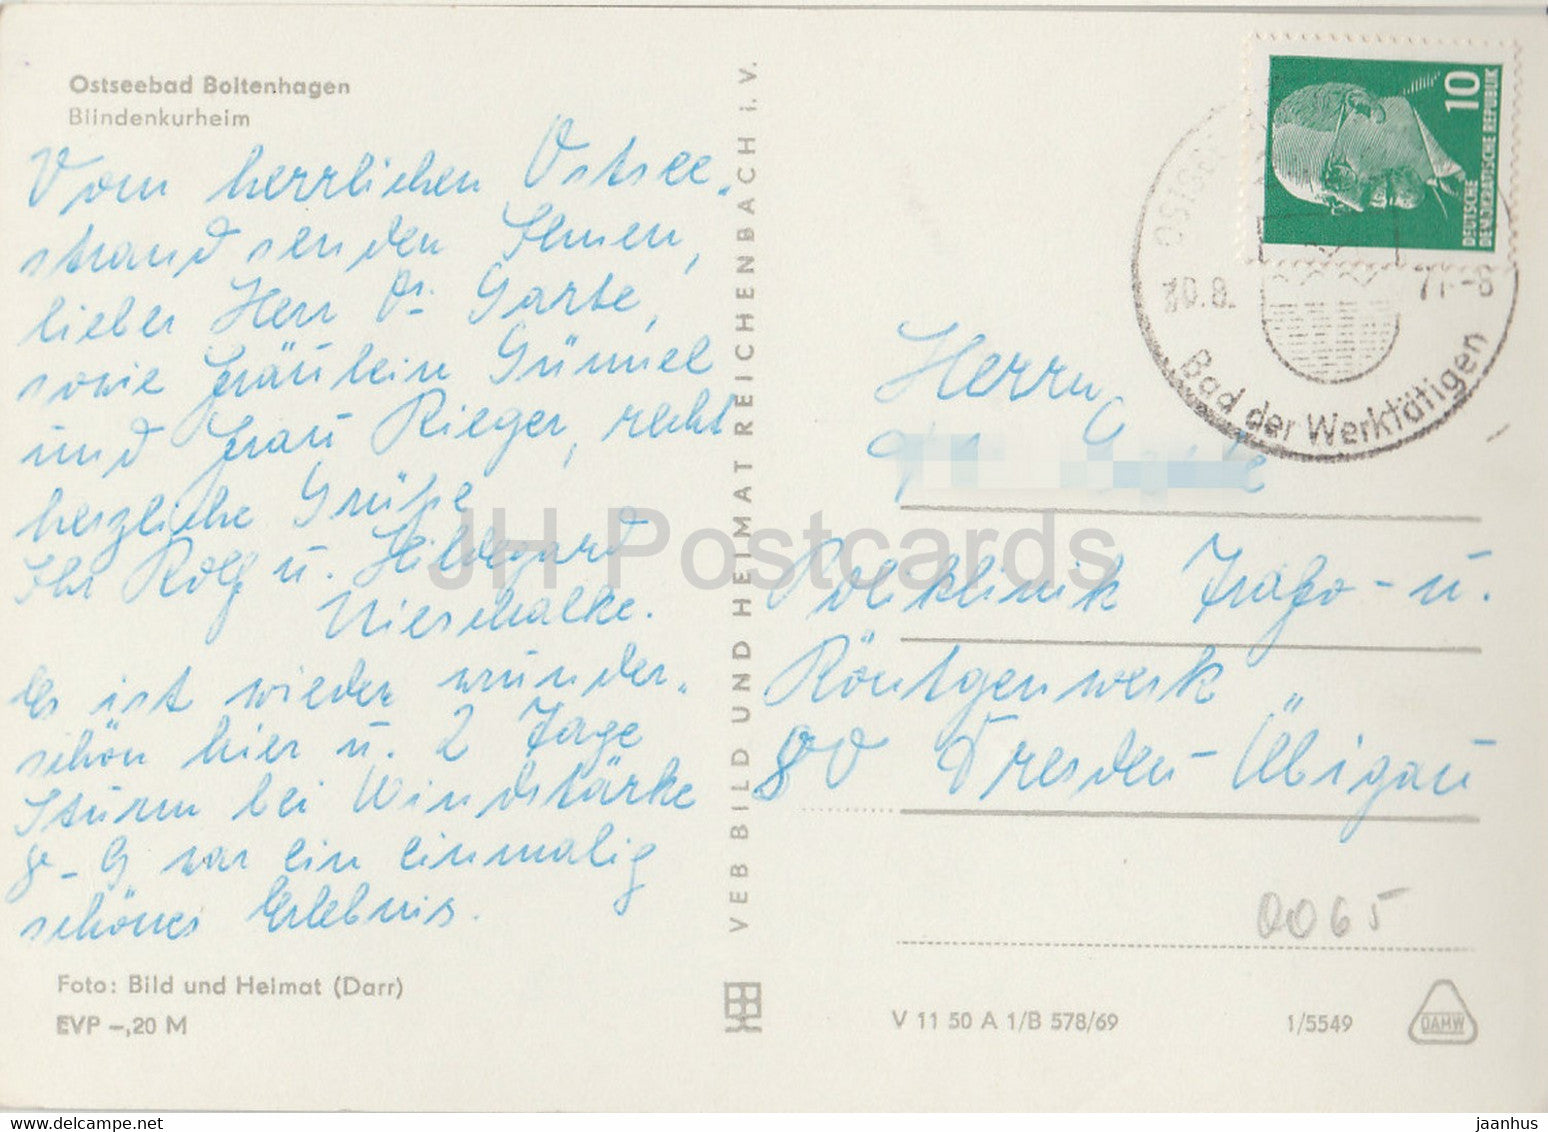 Ostseebad Boltenhagen
Blindenkurheim
Vom herrlichen Ostsee-
strand senden Ihnen,
lieber Herr Dr. Garte,
sowie Fräulein Günnel
und Frau Rieger, recht
herzliche Grüße
Ihr Rolf u. Hildegard
Nierschalke.
Es ist wieder wunder-
schön hier u. 2 Tage
Sturm bei Windstärke
8-9 war ein einmalig
schönes Erlebnis.
Foto: Bild und Heimat (Darr)
EVP -,20 M
VEB BILD UND HEIMAT REICHENBACH i. V.
10
DEUTSCHE
DEMOKRATISCHE REPUBLIK
OSTSEE
10.8. 71-8
Bad der Werktätigen
Herrn
Poliklinik Trafo- u.
Röntgenwerk "
80 Dresden-Übigau
0065
V 11 50 A 1/B 578/69
1/5549
DAMW
JH Postcards
www.delcampe.net
jaanhus